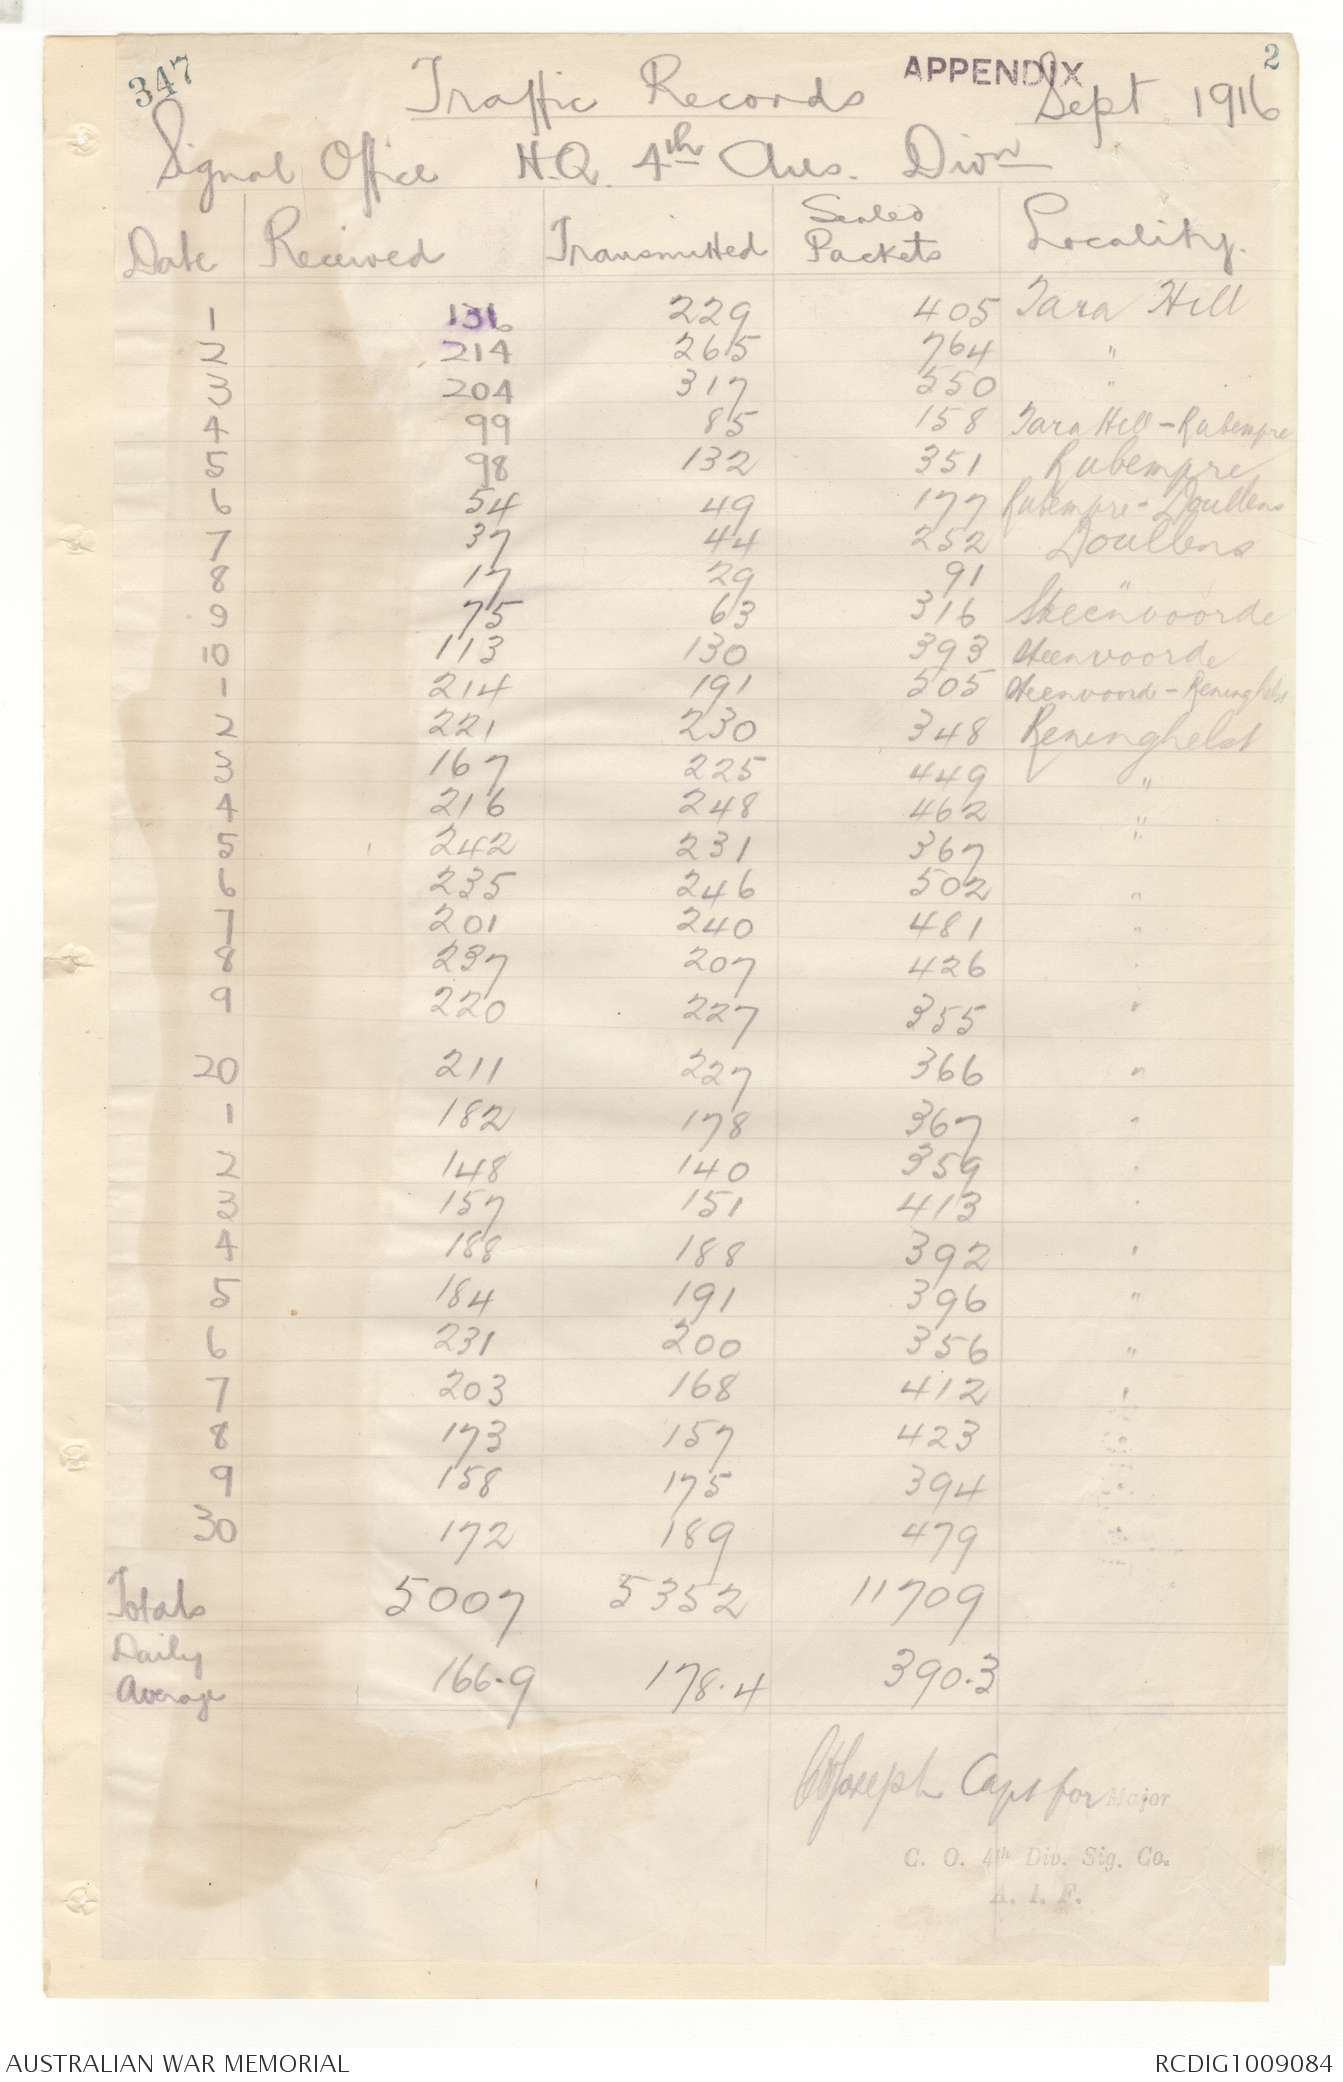 347
APPENDIX 2
Traffic Records Sept 1916
Signal Office H.Q. 4th Aus. Divn
Date Received Transmitted Sealed Packets Locality.
1 136 229 405 Tara Hill
2 214 265 764 "
3 204 317 550 "
4 99 85 158 Tara Hill - Rubempre
5 98 132 351 Rubempre
6 54 49 177 Rubempre - Doullens
7 37 44 252 Doullens
8 17 29 91 "
9 75 63 316 Steenvoorde
10 113 130 393 Steenvoorde
1 214 191 505 Steenvoorde - Reninghelst
2 221 230 348 Reninghelst
3 167 225 449 "
4 216 248 462 "
5 242 231 367 "
6 235 246 502 "
7 201 240 481 "
8 237 207 426 "
9 220 227 355 "
20 211 227 366 "
1 182 178 367 "
2 148 140 359 "
3 157 151 413 "
4 188 188 392 "
5 184 191 396 "
6 231 200 356 "
7 203 168 412 "
8 173 157 423 "
9 158 175 394 "
30 172 189 479 "
Totals 5007 5352 11709
Daily Average 166.9 178.4 390.3
Joseph Capt for Major
C. O. 4th Div. Sig. Co.
A. I. F.
AUSTRALIAN WAR MEMORIAL RCDIG1009084